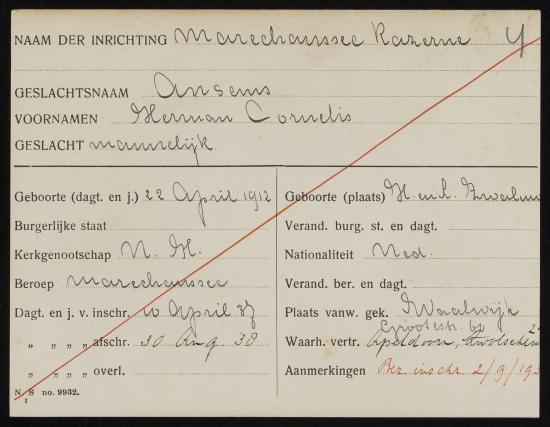 NAAM DER INRICHTING Marechaussee Kazerne 4
GESLACHTSNAAM Ansems
VOORNAMEN Herman Cornelis
GESLACHT mannelijk
Geboorte (dagt. en j.) 22 April 1912
Geboorte (plaats) H. en L. Zwaluw
Burgerlijke staat
Verand. burg. st. en dagt.
Kerkgenootschap N. H.
Nationaliteit Ned.
Beroep marechaussee
Verand. ber. en dagt.
Dagt. en j. v. inschr. 10 April 37
Plaats vanw. gek. Waalwijk
Grootestr. 60
„ „ „ „ afschr. 30 Aug 38
Waarh. vertr. Apeldoorn,
„ „ „ „ overl.
Aanmerkingen Ber. inschr. 2/9/193
N S no. 9932.
1